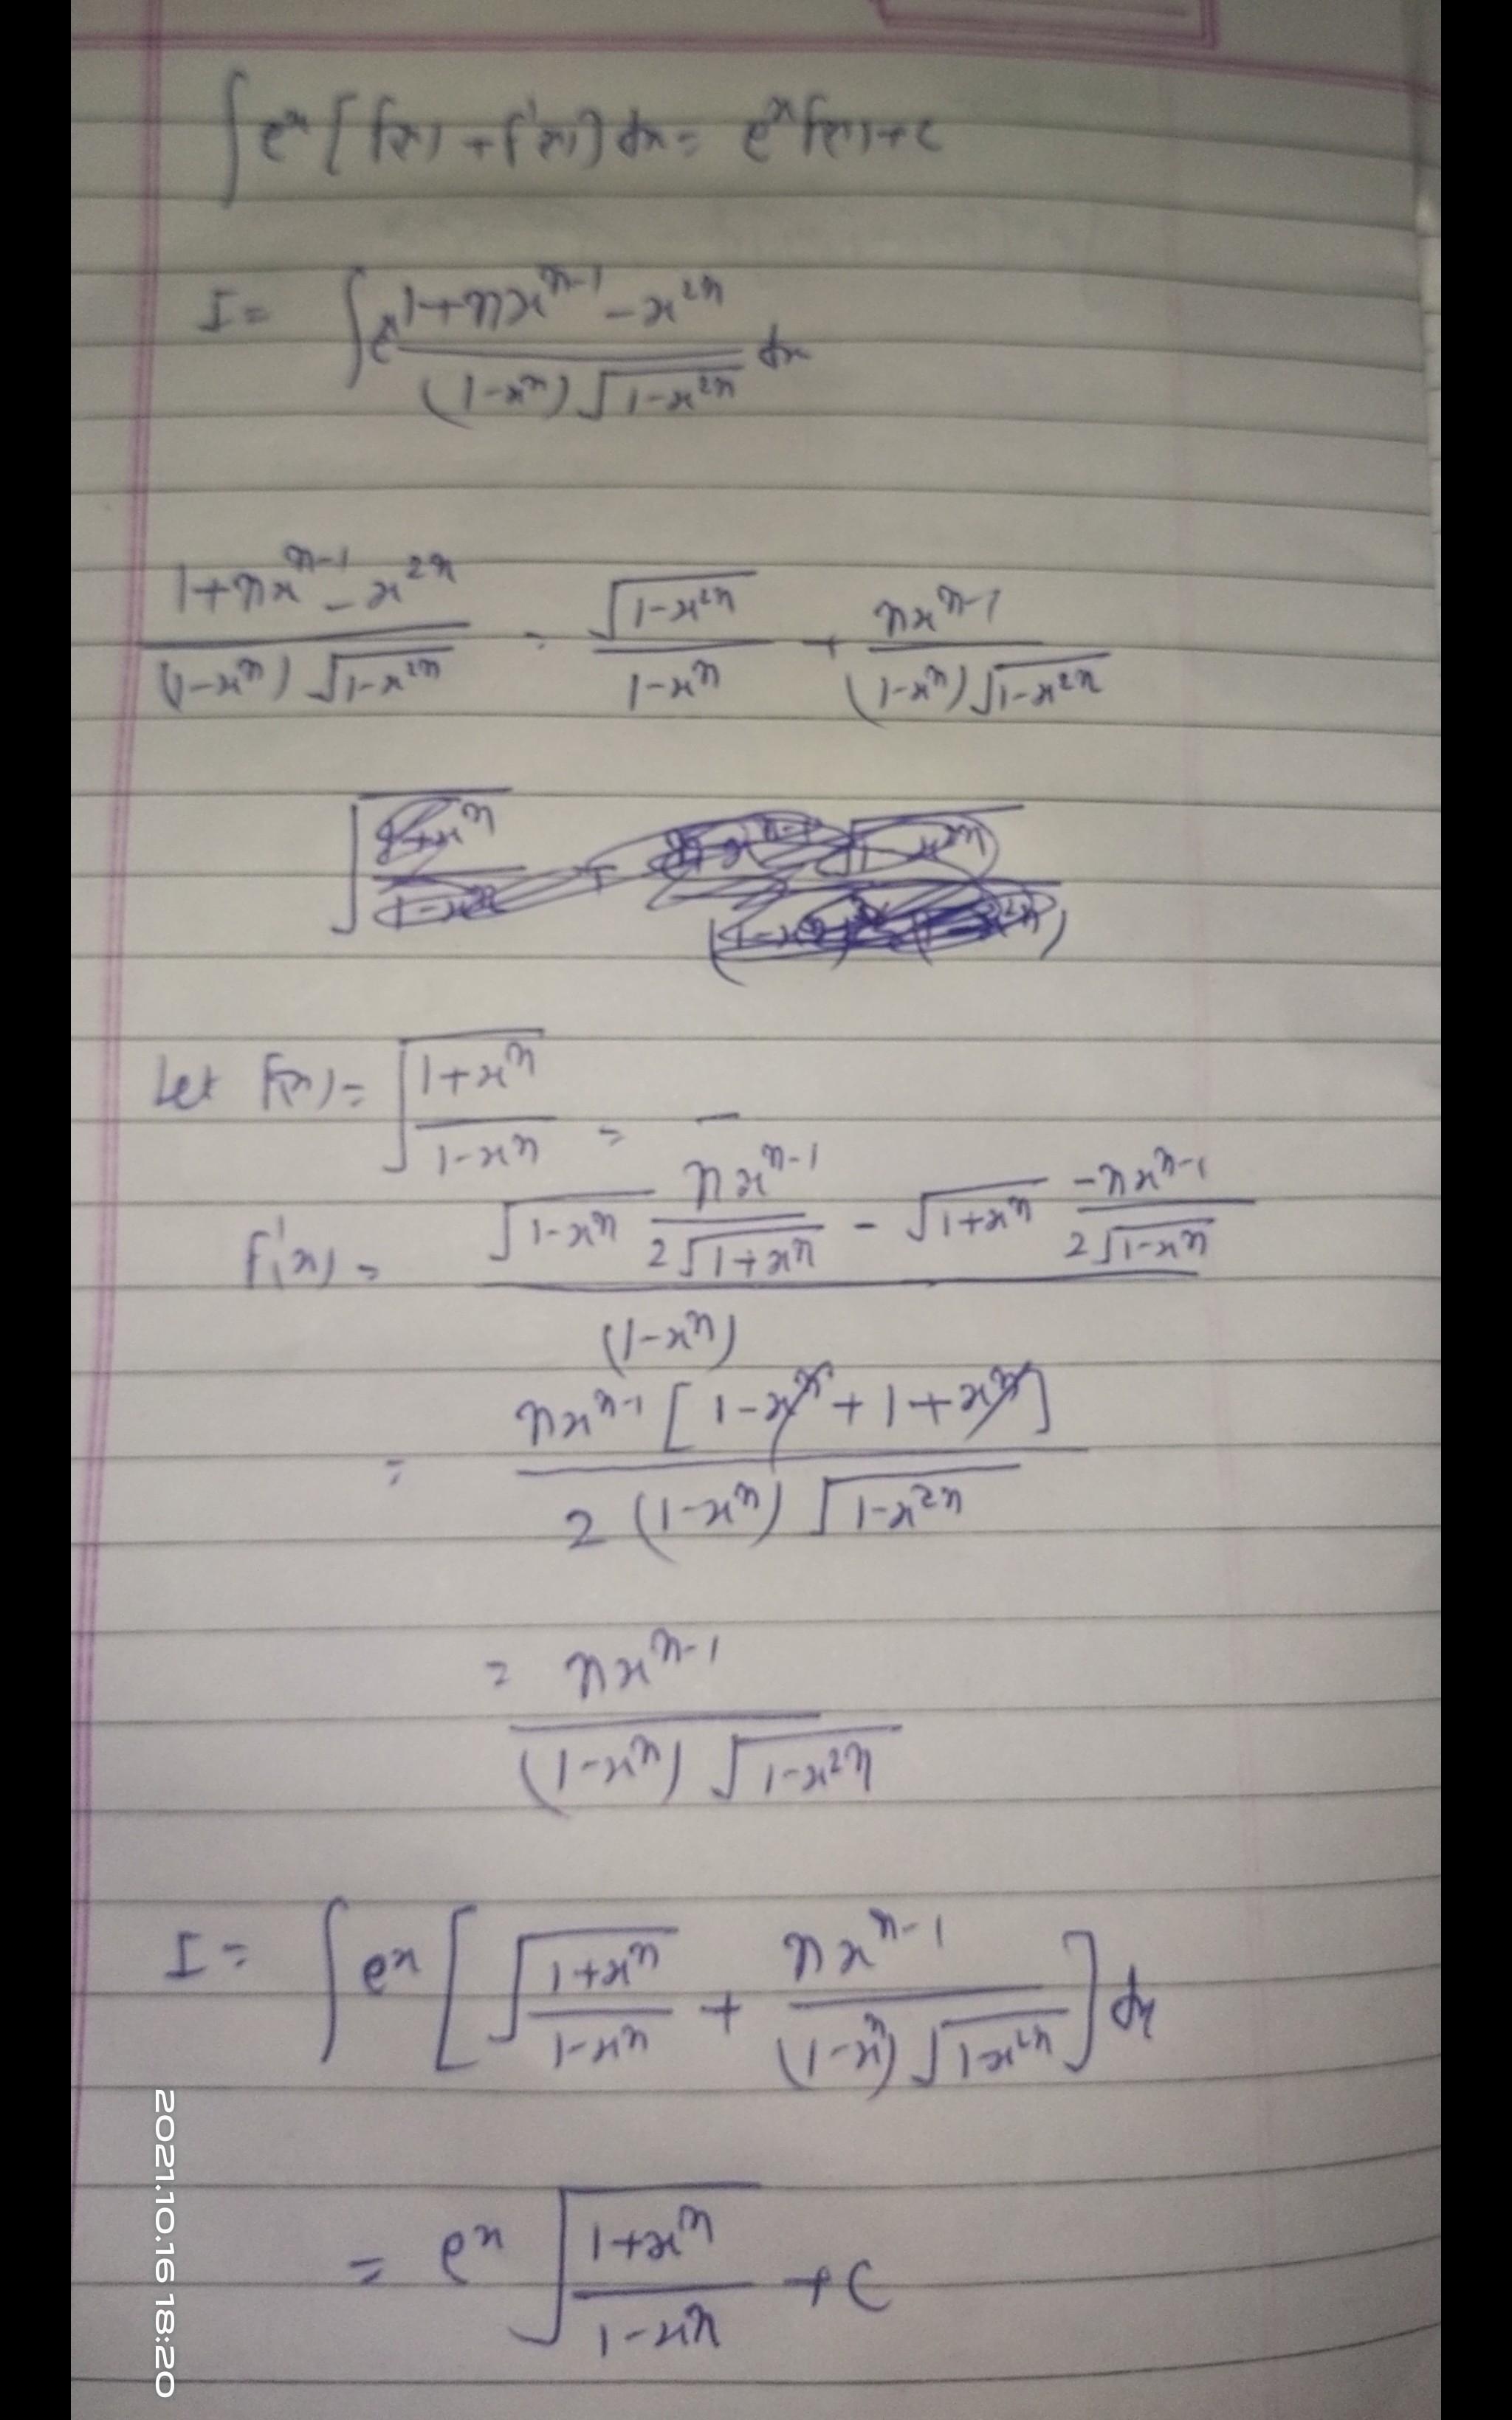 ∫ eˣ [f(x) + f'(x)] dx = eˣ f(x) + c
I = ∫ eˣ (1+nxⁿ⁻¹ - x²ⁿ) / ((1-xⁿ) √(1-x²ⁿ)) dx
(1+nxⁿ⁻¹ - x²ⁿ) / ((1-xⁿ) √(1-x²ⁿ)) = √(1-x²ⁿ) / (1-xⁿ) + nxⁿ⁻¹ / ((1-xⁿ) √(1-x²ⁿ))
Let f(x) = √((1+xⁿ) / (1-xⁿ)) =
f'(x) = (√(1-xⁿ) nxⁿ⁻¹ / (2√(1+xⁿ)) - √(1+xⁿ) (-nxⁿ⁻¹) / (2√(1-xⁿ))) / (1-xⁿ)
= nxⁿ⁻¹ [1-xⁿ + 1+xⁿ] / (2 (1-xⁿ) √(1-x²ⁿ))
= nxⁿ⁻¹ / ((1-xⁿ) √(1-x²ⁿ))
I = ∫ eˣ [√((1+xⁿ) / (1-xⁿ)) + nxⁿ⁻¹ / ((1-xⁿ) √(1-x²ⁿ))] dx
= eˣ √((1+xⁿ) / (1-xⁿ)) + c
2021.10.16 18:20